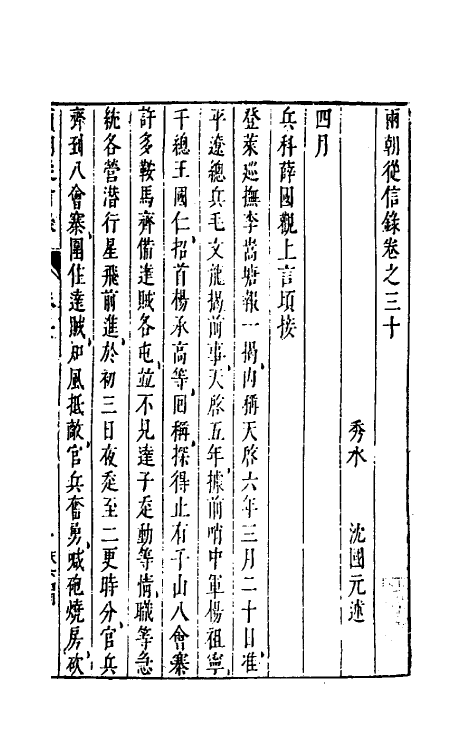 兩朝從信錄卷之三十
秀水 沈國元述
四月
兵科薛國觀上言頃接
登萊巡撫李嵩塘報一揭內稱天啓六年三月二十日准
平遼總兵毛文龍揭前事天啓五年據前哨中軍楊祖寧
千總王國仁招首楊承高等回稱探得止有子山八會寨
許多鞍馬齊備達賊各屯並不見達子走動等情職等急
統各營潛行星飛前進於初三日夜走至二更時分官兵
齊到八會寨圍住達賊風抵敵官兵奮勇喊砲燒房砍